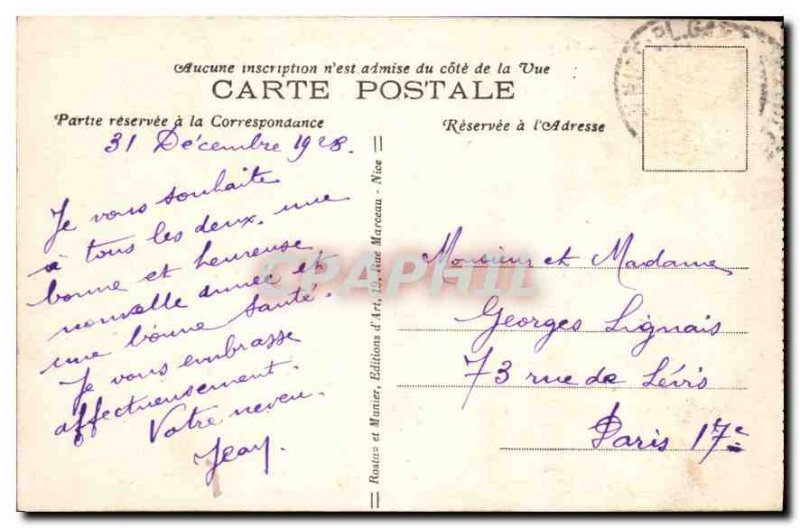 Aucune inscription n'est admise du côté de la Vue
CARTE POSTALE
Partie réservée à la Correspondance
Réservée à l'Adresse
31 Décembre 1928.
Je vous souhaite
à tous les deux, une
bonne et heureuse
nouvelle année et
une bonne santé.
Je vous embrasse
affectueusement.
Votre neveu.
Jean.
Rostan et Munier, Editions d'Art, 19, Rue Marceau - Nice
Monsieur et Madame
Georges Lignais
73 rue de Lévis
Paris 17e
CPAPHIL